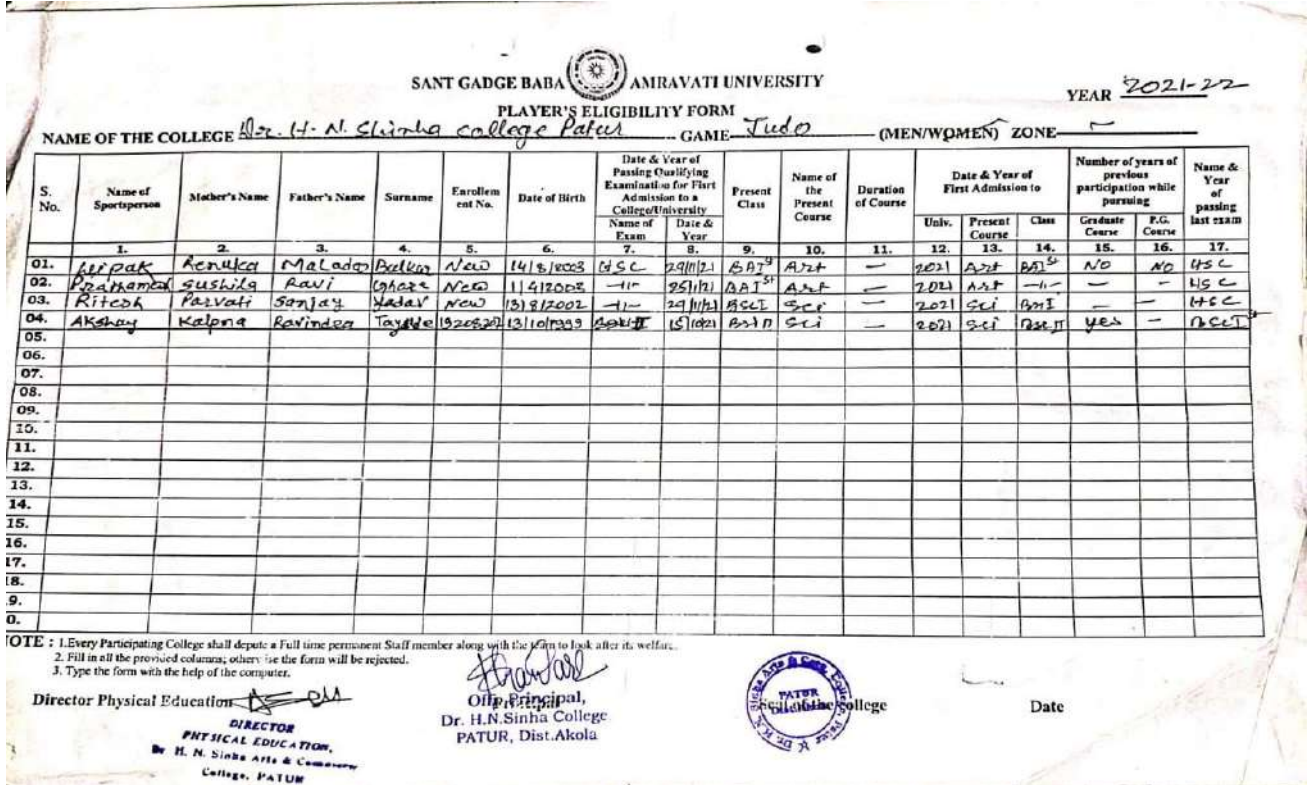 SANT GADGE BABA AMRAVATI UNIVERSITY
YEAR 2021-22
PLAYER'S ELIGIBILITY FORM
NAME OF THE COLLEGE Dr. H. N. Sinha college Patur GAME Judo (MEN/WOMEN) ZONE
S. No. Name of Sportsperson Mother's Name Father's Name Surname Enrollem ent No. Date of Birth Date & Year of Passing Qualifying Examination for Fisrt Admission to a College/University Name of Exam Date & Year Present Class Name of the Present Course Duration of Course Date & Year of First Admission to Univ. Present Course Class Number of years of previous participation while pursuing Graduate Course P.G. Course Name & Year of passing last exam
1. 2. 3. 4. 5. 6. 7. 8. 9. 10. 11. 12. 13. 14. 15. 16. 17.
01. Dipak Renuka Balkar New 14/8/2003 HSC 29/11/21 BAIst Art — 2021 Art BAIst NO NO HSC
02. Sushila Ravi Ghare New 1/4/2003 -11- 25/11/21 BAIst Art — 2021 Art -11- — — HSC
03. Ritesh Parvati Sanjay Yadav New 13/8/2002 -11- 29/11/21 BSCI Sci — 2021 Sci — — HSC
04. Akshay Kalpna Ravindra Tayde 13/10/1999 15/10/21 Sci — 2021 Sci BscII yes — BSCI
05.
06.
07.
08.
09.
10.
11.
12.
13.
14.
15.
16.
17.
18.
9.
0.
OTE : 1.Every Participating College shall depute a Full time permanent Staff member along with the team to look after its welfare.
2. Fill in all the provided columns; otherwise the form will be rejected.
3. Type the form with the help of the computer.
Director Physical Education
DIRECTOR
PHYSICAL EDUCATION,
Dr H. N. Sinha Arts & Commerce
College, PATUR
Principal,
Dr. H.N.Sinha College
PATUR, Dist.Akola
Seal of the College
PATUR
Date